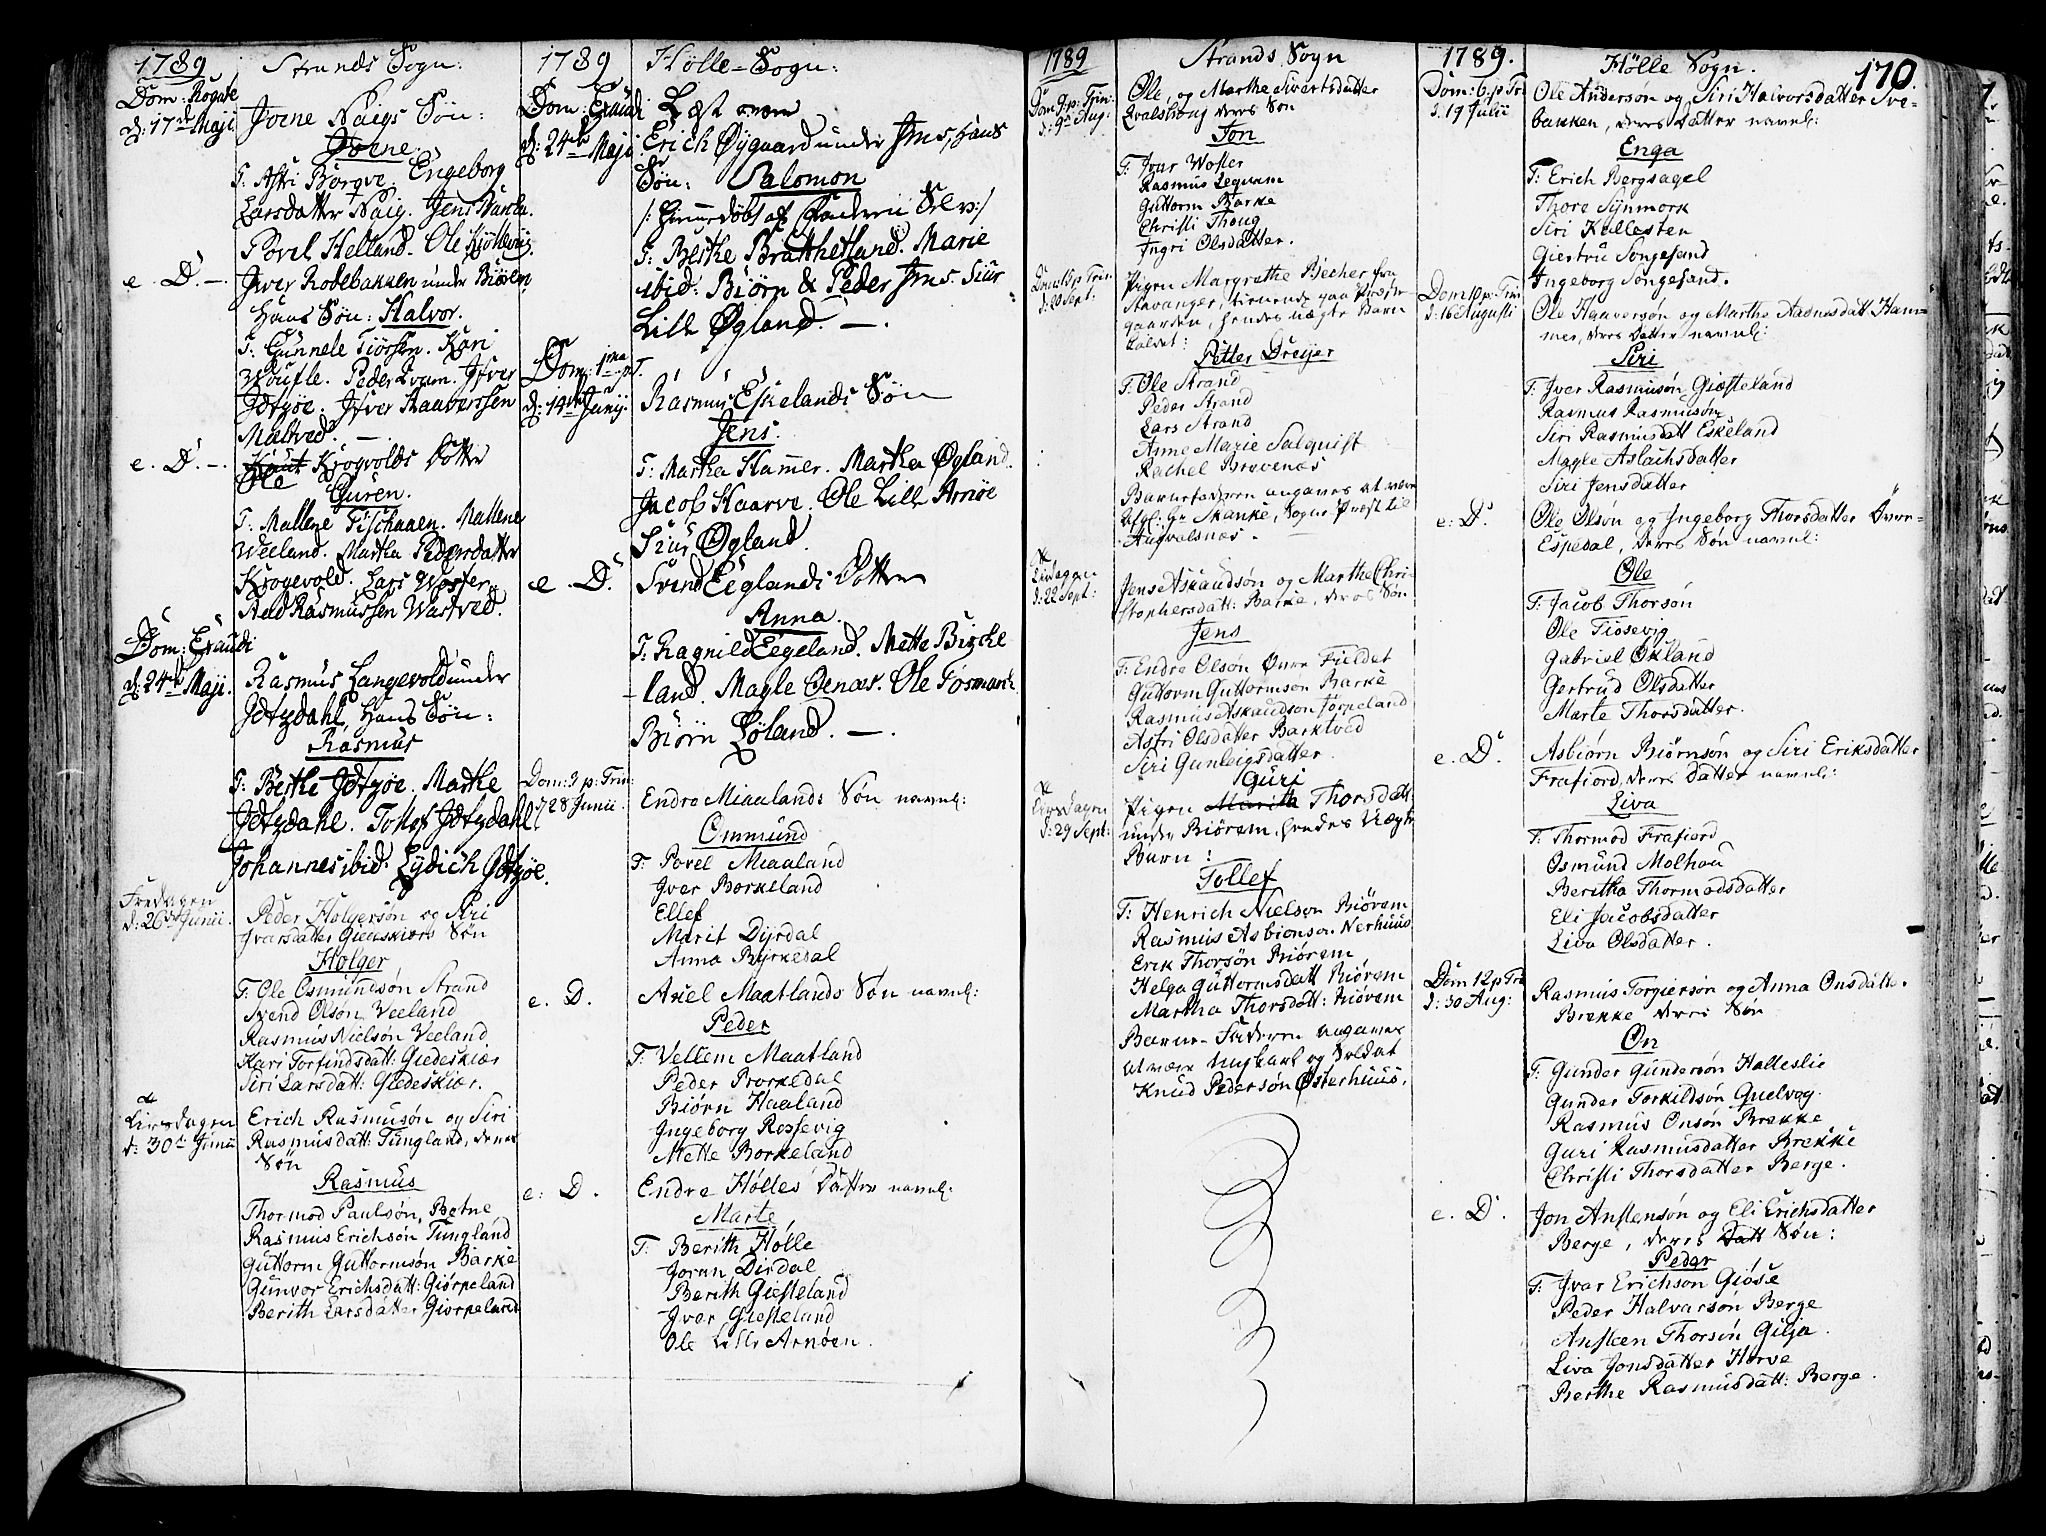 1789
Strands Sogn:
Dom: Rogate
d: 17de Maji
Joene Naigs Søn:
Joene.
T. Astri Borgve. Engeborg
Larsdatter Naig. Jens
Povel Helland. Ole
e. D. —
Jfver Rodebakken under Biören
Hans Søn: Halvor.
T: Gunnele Tiörsen. Kari
Woufle. Peder Qvam. Jfver
Jdtzöe. Jfver Raaverssen
Maltved. —
e. D. —
Knut Krogvolds Dotter
Ole
Guren.
T. Mallene Fischaaen. Mallene
Weeland. Martha Pedersdatter
Krogevold. Lars Woster
Aad Rasmussen Wastved.
Dom: Exaudi
d: 24de Maji.
Rasmus Langevold under
Jdtzdahl, Hans Søn:
Rasmus
T: Berthe Jdtzöe. Marthe
Jdtzdahl. Tollof Jdtzdahl
Johannes ibid. Lydich Jdtzöe.
Fredagen
d: 26de Junii.
Peder Holgersøn og Siri
Jvarsdatter Giedeskiærs Søn
Holger
T. Ole Osmundsøn Strand
Svend Olsøn Veeland
Rasmus Nielsøn Veeland
Kari Torfindsdatt: Giedeskiær
Siri Larsdatt: Giedeskiær.
Tirsdagen
d: 30te Junii
Erich Rasmusøn og Siri
Rasmusdatt: Tungland, deres
Søn
Rasmus
Thormod Paulsøn, Botne
Rasmus Erichsøn Tungland
Guttorm Guttormsøn Barke
Gunvor Erichsdatt: Giörpeland
Berith Larsdatter Giorpeland
1789
Hølle-Sogn:
Dom: Exaudi
d: 24de Maji
Læst over
Erich Øygaard under Jms, hans
Søn: Salomon
/: Hiemmedöbt af Faderen Selv:/
T: Berthe Bratthetland. Marie
ibid: Biörn & Peder Jms. Siur
Lille Øgland. —.
Dom: 1ma p T.
d: 14de Junij.
Rasmus Eskelands Søn
Jens.
T: Martha Hammer. Martha Øgland.
Jacob Haarve. Ole Lille Arnöe
Siur Øgland.
e. D.
Svend Eiglands Dotter
Anna.
T. Ragnild Eigeland. Mette Birke
land. Magle Oenæs. Ole Fosmark
Biörn Löland. —.
Dom: 3 p: Trin:
28 Junii.
Endre Miaalands Søn navnl:
Ommund
T: Povel Miaaland
Jver Borkeland
Ellef
Marit Dijrdal
Anna Byrkedal
e. D.
Axel Maatlands Søn navnl:
Peder
T: Vellem Maatland
Peder Borkedal
Biörn Haaland
Jngeborg Rossevig
Mette Borkeland
e: D.
Endre Hölles Datter navnl:
Marte
T: Berith Hölle
Joran Dirdal
Berith Giesteland
Jver Giesteland
Ole Lille Arnöen.
1789
Strands Sogn
Dom 9 p: Trin:
d: 9de Aug.
Ole, og Marthe Sivertsdatter
Qvalsborg deres Søn
Jon
T: Jvar Woster
Rasmus Leqvam
Guttorm Barke
Christi Thoug
Jngri Olsdatter.
d: 20 Sept:
Pigen Margrethe Becher fra
Stavanger, tienende paa Præste
gaarden, hendes uægte Barn
kaldet:
Petter Dreyer
T: Ole Strand
Peder Strand
Lars Strand
Anne Marie Salqvist
Rachel Brevenæs
Barnefaderen angaves at være
Hr Skanke, Sogne Præst til
Augvalsnæs.
Tirsdagen
d: 22 Sept:
Jens Askaudsøn og Marthe Chri-
stophersdatt: Barke, deres Søn
Jens
T: Endre Olsøn Øvre Fieldet
Guttorm Guttormsøn Barke
Rasmus Askaudsøn Jørpeland
Astri Olsdatter Barktved
Siri Gunleigsdatter
Tirsdagen
d: 29 Sept:
Guri
Pigen Marith Thorsdatt:
under Biörem, hendes Uægte
Barn:
Tollef
T: Henrich Nielsøn Biörem
Rasmus Asbiönsøn Nerhuus
Erik Thorsøn Biörem
Helga Guttormsdatt Biörem
Martha Thorsdatt: Biörem
Barne-Faderen angaves
at være Ungkarl og Soldat
Knud Pedersøn Østerhuus.
1789.
Hölle Sogn.
170.
Dom: 6. p Tri
d. 19 Julii
Ole Andersøn og Siri Halvorsdatter Sve-
bakken, deres Datter navnl:
Enga
T: Erich Bergsagel
Thore Synmork
Siri Kallesten
Giertru Songesand
Jngeborg Songesand.
Dom 10 p: Trin
d: 16 Augusti
Ole Haaversøn og Marthe Aadnesdatt Ham-
mer, deres Datter navnl:
Siri
T: Jver Rasmusøn Giesteland
Rasmus Rasmusøn
Siri Rasmusdatt Eskeland
Magle Aslachsdatter
Siri Jensdatter
e: D.
Ole Olsøn og Jngeborg Thorsdatter Över-
Espedal, deres Søn navnl:
Ole
T: Jacob Thorsøn
Ole Tiosevig
Gabriel Økland
Gertrud Olsdatter
Marte Thorsdatter.
e. D.
Asbiørn Biörnsøn og Siri Eriksdatter
Frafiord, deres datter navnl:
Liva
T: Thormod Frafiord
Osmund Molhau
Beritha Thormodsdatter
Eli Jacobsdatter
Liva Olsdatter.
Dom 12 p Tri
d: 30 Aug:
Rasmus Torgiersøn og Anna Onsdatt.
Brekke deres Søn
On
T: Gunder Gundersøn Halleslie
Gunder Torkildsøn Quelvog
Rasmus Onsøn Brekke
Guri Rasmusdatter Brekke
Christi Thorsdatter Berge.
e. D.
Jon Anstensøn og Eli Erichsdatter
Berge, deres Datt Søn:
Peder
T: Jvar Erichsøn Giöse
Peder Halvarsøn Berge
Ansteen Thorsøn Gilja.
Liva Jonsdatter Horve
Berthe Rasmusdatt: Berge.